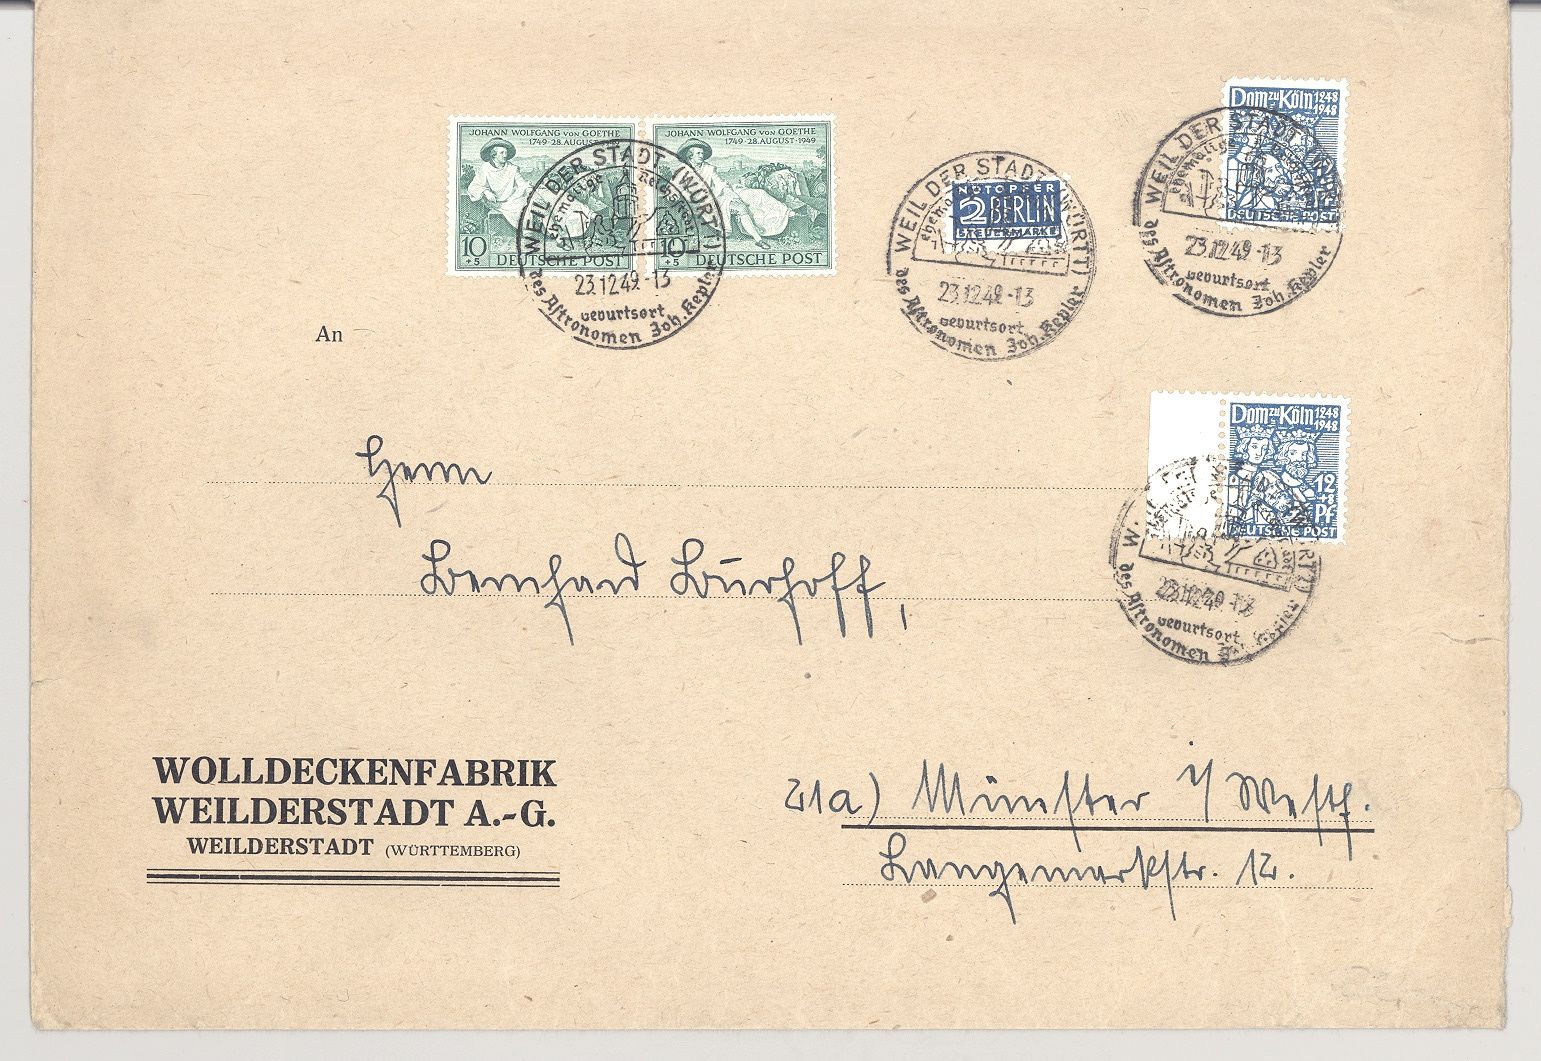 JOHANN WOLFGANG VON GOETHE
1749 - 28. AUGUST - 1949
10
+5
DEUTSCHE POST
JOHANN WOLFGANG VON GOETHE
1749 - 28. AUGUST - 1949
10
+5
DEUTSCHE POST
WEIL DER STADT (WÜRTT)
ehemalige Reichsstadt
23.12.49.-13
Geburtsort
des Astronomen Joh. Kepler
NOTOPFER
2 BERLIN
STEUERMARKE
WEIL DER STADT (WÜRTT)
23.12.49.-13
Geburtsort
des Astronomen Joh. Kepler
Dom zu Köln 1248
1948
DEUTSCHE POST
WEIL DER STADT
ehemalige
23.12.49.-13
Geburtsort
des Astronomen Joh. Kepler
Dom zu Köln 1248
1948
12
+3
Pf
DEUTSCHE POST
Geburtsort
des Astronomen
An
Herrn
Bernhard Burhoff,
21a) Münster i/ Westf.
Langemarkstr. 12.
WOLLDECKENFABRIK
WEILDERSTADT A.-G.
WEILDERSTADT (WÜRTTEMBERG)